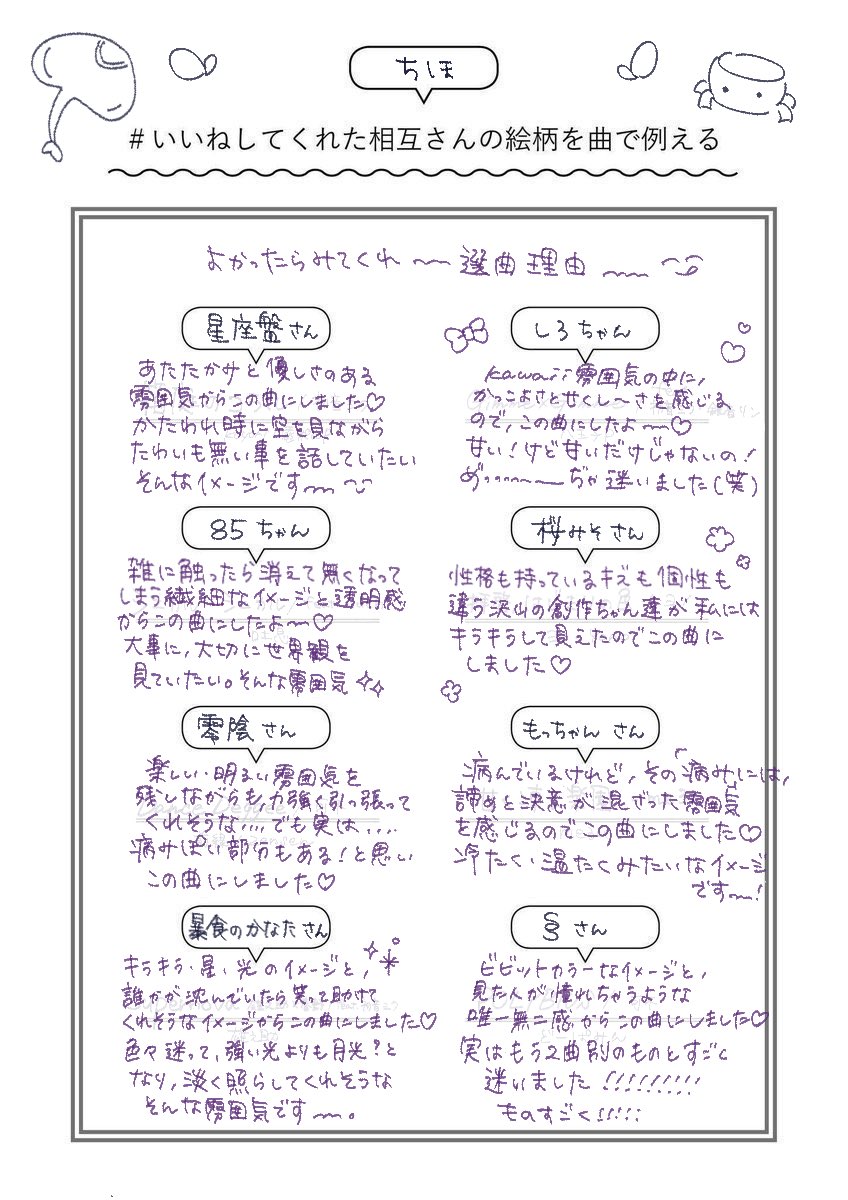 ちほ
#いいねしてくれた相互さんの絵柄を曲で例える
よかったらみてくれ〜〜選曲理由
星座盤さん
あたたかみと優しさのある
雰囲気からこの曲にしました♡
かたわれ時に空を見ながら
たわいも無い事を話していたい
そんなイメージです〜
しろちゃん
kawaii雰囲気の中に,
かっこよさと甘くし〜さを感じる
ので,この曲にしたよ〜♡
甘い!けど甘いだけじゃないの!
迷いました(笑)
85ちゃん
雑に触ったら消えて無くなって
しまう繊細なイメージと透明感
からこの曲にしたよ〜♡
大事に,大切に世界観を
見ていたい。そんな雰囲気
桜みそさん
性格も持っているキズも個性も
違う沢山の創作ちゃん達が私には
キラキラして見えたのでこの曲に
しました♡
零陰さん
楽しい・明るい雰囲気を
残しながらも,力強く引っ張って
くれそうな,,,,でも実は....
病みぽい部分もある!と思い
この曲にしました♡
もっちゃんさん
病んでいるけれど,その「病み」には,
諦めと決意が混ざった雰囲気
を感じるのでこの曲にしました♡
冷たく・温たくみたいなイメージ
です〜!
暴食のかなたさん
キラキラ・星・光のイメージと,
誰かが沈んでいたら笑って助けて
くれそうなイメージからこの曲にしました♡
色々迷って,強い光よりも月光?と
なり,淡く照らしてくれそうな
そんな雰囲気です〜。
§さん
ビビットカラーなイメージと,
見た人が憧れちゃうような
唯一無二感からこの曲にしました♡
実はもう2曲別のものとすごく
迷いました!!!!!!!!!
ものすごく!!!!!